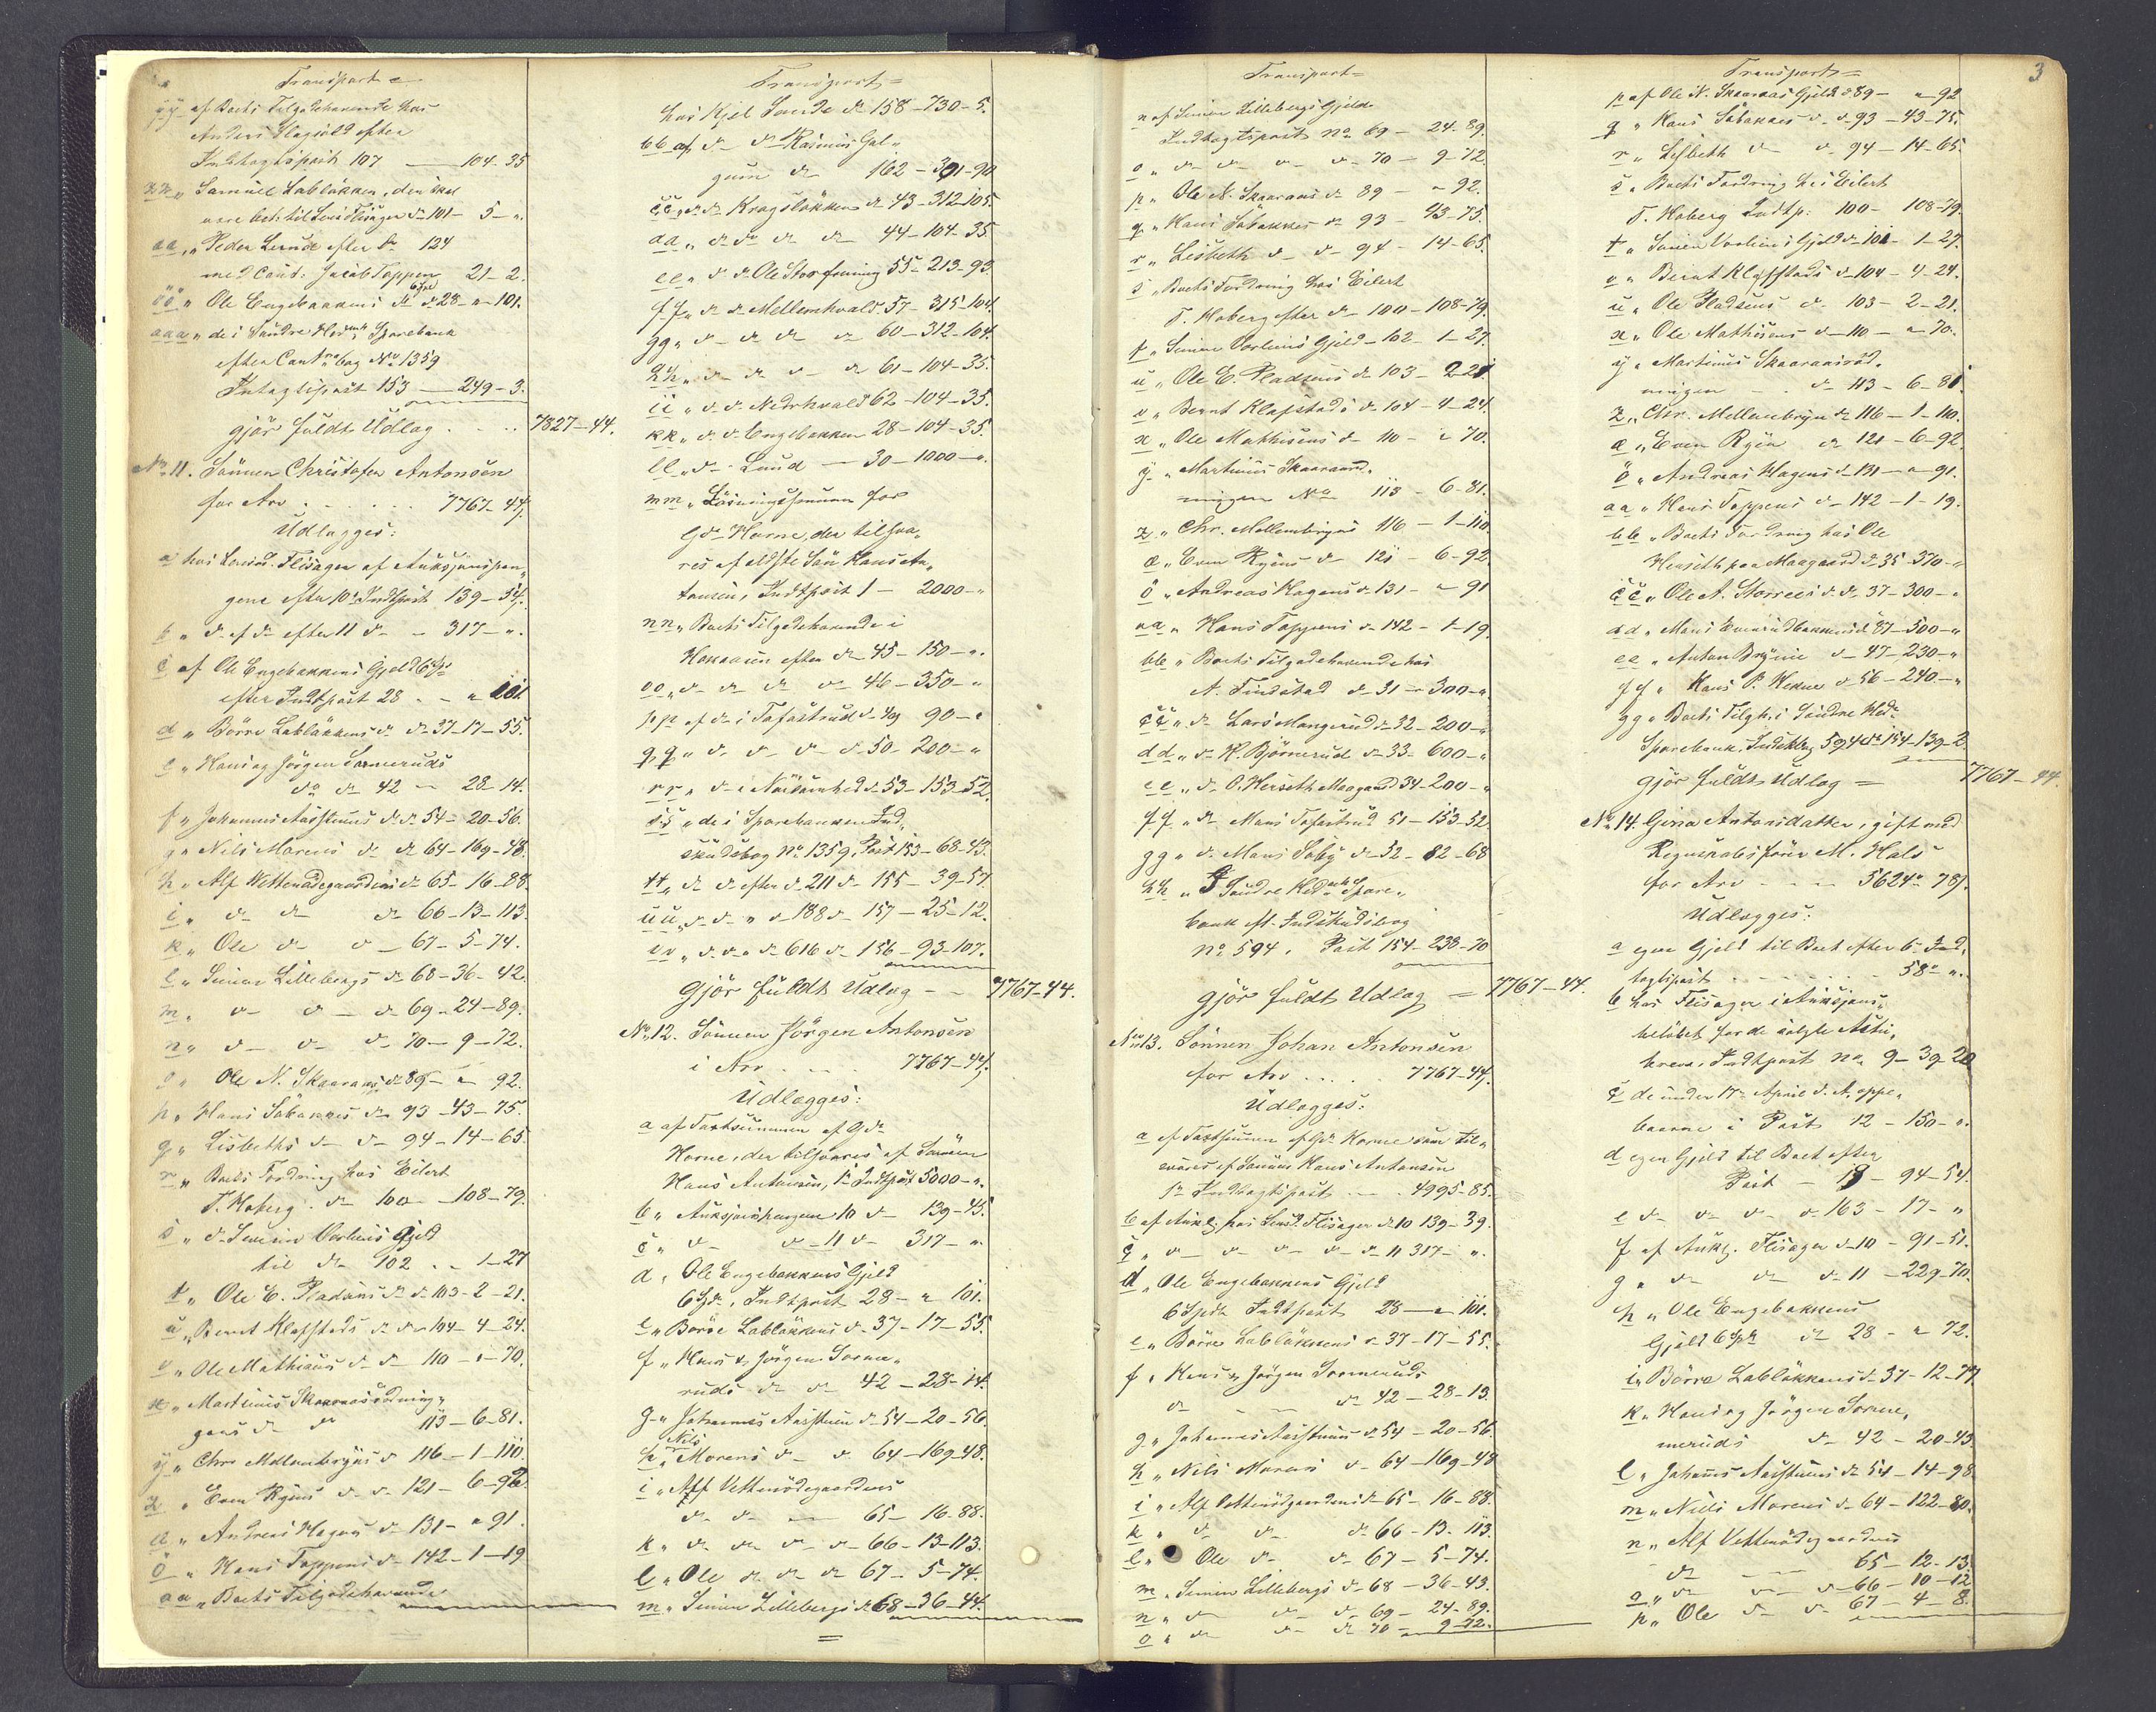 Transport
yy af Boets Tilgodehavende hos
Anders Hagsold efter
Indtægtspost 107 — 104-35
Samuel Labløkken, den skal
være bet. til Lensd. Flisager do 101 - 5 - "
aa " Peder Lunde efter do 124
med Caut: Jacob Toppen 21-2.
öö " Ole Engebakkens 6 Spd do 28 - " - 101.
aaa " do i Søndre Hedmk Sparebank
efter Contrabog No 1359
Indtægtspost 153 — 249-3.
gjør fuldt Udlæg . . . 7827-44.
No 11. Sønnen Christofer Antonsen
for Arv . . . . . 7767-44.
Udlægges:
a hos Lensd. Flisager af Auksjonspen-
gene efter 10de Indtpost 139-34.
b " do af do efter 11 do - 317 - ".
c af Ole Engebakkens Gjeld 6 Spd
efter Indtpost 28 - " 101
d " Børre Labløkkens do do 37-17-55.
e " Hans og Jørgen Sormeruds
do do 42 - 28-14.
f " Johannes Aasstuens do do 54-20-56.
g " Nils Morens do do 64-169-48.
h " Alf Vettenødegaardens do 65-16-88.
i " do do do 66-13-113.
k " Ole do do 67-5-74.
l " Simen Lillebergs do 68-36-42.
m " do do do 69-24-89.
n " do do do 70-9-72.
o " Ole N. Skaaraas do 89 - " 92.
p " Hans Søbakkes do 93-43-75.
q " Lisbeths do do 94-14-65
r " Boets Fordring hos Eilert
T. Hoberg do 100 - 108-79.
s " do Simen Vorlies Gjeld
til do 102 . . 1-27
t " Ole E. Pladsens do do 103-2-21.
u " Bernt Klafstads do do 104-4-24.
v " Ole Mathisens do do 110 - " 70.
x " Martinus Skaaraasrødnin-
gens do do 113-6-81.
y " Chr. Mellembryns do 116-1-110.
z " Even Ryens do do 121-6-92.
æ " Andreas Hagens do 131 - " 91.
ö " Hans Toppens do 142-1-19
aa " Boets Tilgodehavende
Transport
hos Kjel Sande do 158-730-5.
bb af do do Rasmus Gal-
gum do 162-391-90
cc " do do Kragsløkken do 43-312-105.
dd " do do do do 44-104-35
ee " do do Ole Storfoning 55-213-93.
ff " do do Mellemkvald 57-315-104.
gg " do do do do 60-312-104.
hh " do do do do 61-104-35.
ii " do do Nedrkvald 62-104-35.
kk " do do Engebakken 28-104-35.
ll " do Lund - 30-1000-".
mm " Løsningssummen for
Gdn Horne, der tilsva-
res af ældste Søn Hans An-
tonsen, Indtpost 1 - 2000-"
nn " Boets Tilgodehavende i
efter do 45-150-".
oo " do do do do 46-350-"
pp af do i Tofastrud do 49 90-"
qq " do do do do 50-200-"
rr " do i do 53-153-52.
ss " do i Sparebanken Ind-
skudsbog No 1359, Post 153-68-43.
tt " do do efter do 211 do 155-39-57.
uu " do do " do 188 do 157-25-12.
vv " do do " do 616 do 156-93-107.
Gjør fuldt Udlæg - - 7767-44.
No 12. Sønnen Jørgen Antonsen
i Arv . . . 7767-44.
Udlægges:
a af Taxtsummen af Gdn
Horne, der tilsvares af Sønnen
Hans Antonsen, 1ste Indtpost 5000-".
b " Auksjonspengene 10 do 139-45.
c " do do 11 do 317-".
d " Ole Engebakkens Gjeld
6 Spd, Indtpost 28 - " 101.
e " Børre Labløkkens do 37-17-55.
f " Hans & Jørgen Sorme-
ruds do do 42-28-14.
g " Johannes Aasstuen do 54-20-56.
h " Nils Morens do do 64-169-48.
i " Alf Vettenødegaardens
do do - 65-16-88.
k " do do do do 66-13-113.
l " Ole do do do 67-5-74.
m " Simen Lillebergs do 68-36-44.
Transport
n af Simen Lillebergs Gjeld
Indtægtspost No 69-24-89.
o " do do do do 70-9-72.
p " Ole N. Skaaraas do 89 - " 92.
q " Hans Søbakkes do 93-43-75.
r " Lisbeth do do 94-14-65.
s " Boets Fordring hos Eilert
T. Hoberg efter do 100-108-79.
t " Simen Vorlies Gjeld - 102-1-27.
u " Ole E. Pladsens do 103-2-21.
v " Bernt Klafstads do 104-4-24.
x " Ole Mathisens do 110 - " 70.
y " Martinus Skaaraasrød-
ningen No 113-6-81.
z " Chr. Mellembryns 116-1-110.
æ " Even Ryens do 121-6-92.
ö " Andreas Hagens do 131 - " 91
aa " Hans Toppens do 142-1-19.
bb " Boets Tilgodehavende hos
A. Findstad do 31-300-".
cc " do Lars Mangerud do 32-200-"
dd " do K. Bjørnerud do 33-600-"
ee " do O. Herseth Maagaard 34-200-"
ff " do Mans Tofastrud 51-153-52.
gg " do Mans Søby do 52-82-68
hh " I Søndre Hedmk Spare-
bank eft. Indskudsbog
No 594, Post 154-238-70
gjør fuldt Udlæg = 7767-44.
No 13. Sønnen Johan Antonsen
for Arv . . . . 7767-44.
Udlægges:
a af Taxtsummen af Gdn Horne som til-
svares af Sønnen Hans Antonsen
1ste Indtægtspost . . . 4995-85.
b af Auks. hos Lensd. Flisager do 10 139-39.
c " do do do do do 11 317-".
d " Ole Engebakkens Gjeld
6 Spd Indtpost 28 — " 101.
e " Børre Labløkkens do 37-17-55.
f " Hans og Jørgen Sormeruds
do - - do 42-28-13.
g " Johannes Aasstuens do 54-20-56
h " Nils Morens do 64-169-48
i " Alf Vettenødegaardens do 65-16-88.
k " do do do 66-13-113.
l " Ole do do 67-5-74.
m " Simen Lillebergs do 68-36-43.
n " do do do 69-24-89.
o " do do do 70-9-72.
3
Transport
p af Ole N. Skaaraas Gjeld do 89 - " 92
q " Hans Søbakkes do do 93-43-75.
r " Lisbeth do do 94-14-65.
s " Boets Fordring hos Eilert
T. Hoberg Indtp. 100-108-79.
t " Simen Vorlies Gjeld do 101-1-27.
v " Bernt Klafstads do 104-4-24.
u " Ole Pladsens do 103-2-21.
x " Ole Mathisens do 110 - " 70.
y " Martinus Skaaraasrød-
ningen - - do 113-6-81
z " Chr. Mellembryn do 116-1-110.
æ " Even Ryen do 121-6-92
ö " Andreas Hagens do 131 - " 91.
aa " Hans Toppens do 142-1-19.
bb " Boets Fordring hos Ole
Herseth paa Maagaard do 35-370-"
cc " Ole A. Storrei do do 37-300-"
dd " Mans Evenrudbakken do 87-500-"
ee " Anton Brynie do 47-230-"
ff " Hans P. Hekne do 56-240-"
gg " Boets Tilgh. i Søndre Hedm.
Sparebank, Indskbog 594 do 154-139-2.
gjør fuldt Udlæg = 7767-44.
No 14. Gina Antonsdatter, gift med
Regnskabsfører M. Hals
for Arv - - - 5624-78.
Udlægges:
a egen Gjeld til Boet efter 6te Ind-
tægtspost . . . . . . 58-".
b hos Flisager i Auksjons-
beløbet for de solgte Aktie-
breve, Indtpost No 9-39-20
c do under 17de April d. A. oppe-
baarne i Post 12-150-".
d egen Gjeld til Boet efter
Post - 19-94-54.
e do do do do 163-17-"
f af Auks. Flisager do 10-91-51.
g " do do do 11-229-70.
h " Ole Engebakkens
Gjeld 6 Spd do 28 - " 72.
i " Børre Labløkkens do 37-12-79
k " Hans og Jørgen Sorme-
meruds do 42-20-43
l " Johans Aasstuens do 54-14-98
m " Nils Morens do 64-122-80.
n " Alf Vettenødegaardens
do - - 65-12-13.
o " do do do 66-10-12
p " Ole do do 67-4-8.